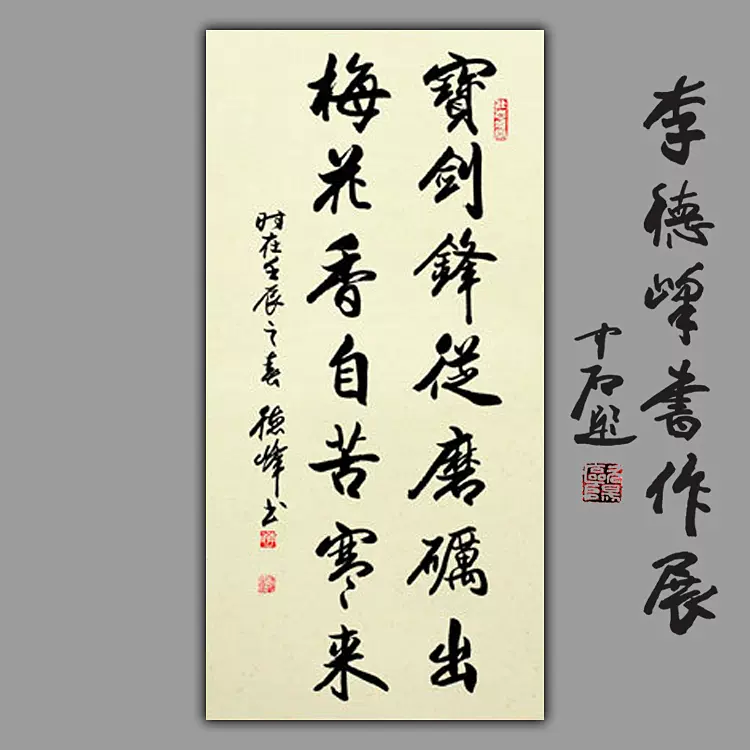 李德峰書作展
中石题
寶剑鋒從磨礪出
梅花香自苦寒来
时在壬辰之春 德峰书